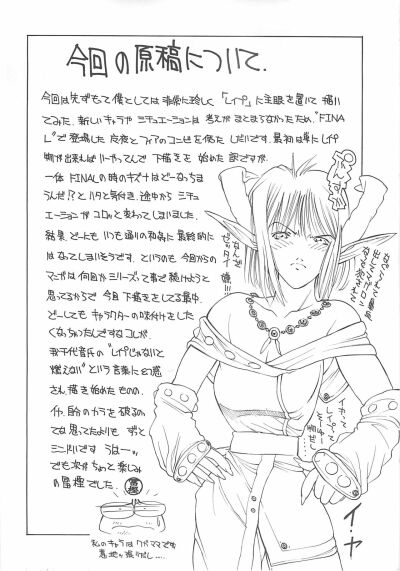 今回の原稿について.
今回は先ずもって僕としては非常に珍しく「レイプ」に主眼を置いて描い
てみた. 新しいキャラやシチュエーションは考えがまとまらなかったため、"FINA
L"で登場した
最初は単にレイプ
物が出来ればいーやってんで下描きを始めた訳ですが.
一体 FINALの時のキズナはどーなっちま
うんだ!?とハタと気付き、途中からシチュ
エーションがコロッと変わってしまいました.
結果、どーにもいつも通りの和姦に最終的に
はなってしまいそうです. というのも今回からの
マンガは何回かシリーズって事で続けようと
思ってるからで今回下描きをしてる最中.
どーしてもキャラクターの味付けをした
くなっちゃったんですなコレが.
"レイプじゃないと
燃えない"という言葉に幻惑
され、描き始めたものの.
イヤ、自分のカラを破るの
てな思ってたよりもずっと
シンドイです うはー〜.
でも次がちょっと楽しみ
の冨樫でした.
ぷんすか
なんで
イ・ヤ
私のキャラは
意地っ張りだし.....